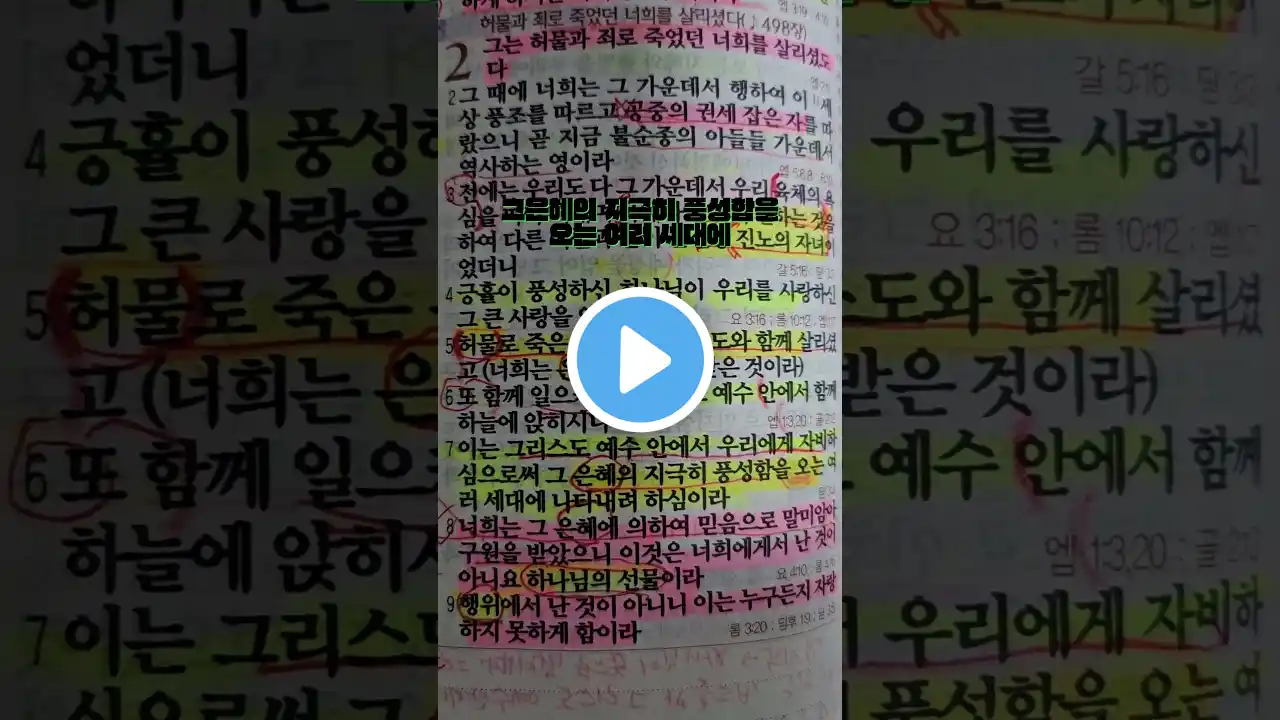 허물과 죄로 죽었던 너희를 살리셨다(♪498장)
2 그는 허물과 죄로 죽었던 너희를 살리셨도
다
2 그 때에 너희는 그 가운데서 행하여 이 세
상 풍조를 따르고 공중의 권세 잡은 자를 따
랐으니 곧 지금 불순종의 아들들 가운데서
역사하는 영이라
엡 5:6,8
3 전에는 우리도 다 그 가운데서 우리 육체의 욕
심을 하는 것을
그 은혜의 지극히 풍성함을
오는 여러 세대에
하여 다른 진노의 자녀이
었더니
갈 5:16
4 긍휼이 풍성하신 하나님이 우리를 사랑하신
그 큰 사랑을
요 3:16 ; 롬 10:12
5 허물로 죽은 도와 함께 살리셨
고 (너희는 은 받은 것이라)
6 또 함께 일으 예수 안에서 함께
하늘에 앉히시니
엡 1:3,20 ; 골 2:12
7 이는 그리스도 예수 안에서 우리에게 자비하
심으로써 그 은혜의 지극히 풍성함을 오는 여
러 세대에 나타내려 하심이라
8 너희는 그 은혜에 의하여 믿음으로 말미암아
구원을 받았으니 이것은 너희에게서 난 것이
아니요 하나님의 선물이라
요 4:10
9 행위에서 난 것이 아니니 이는 누구든지 자랑
하지 못하게 함이라
롬 3:20 ; 딤후 1:9
었더니
4 긍휼이 풍성하
그 큰 사랑을
5 허물로 죽은
고 (너희는 은
6 또 함께 일으
하늘에 앉히시
7 이는 그리스도
심으로써 그
갈 5:16
우리를 사랑하신
요 3:16 ; 롬 10:12
스도와 함께 살리셨
받은 것이라)
예수 안에서 함께
엡 1:3,20 ; 골 2:12
우리에게 자비하
풍성함을 오는 여